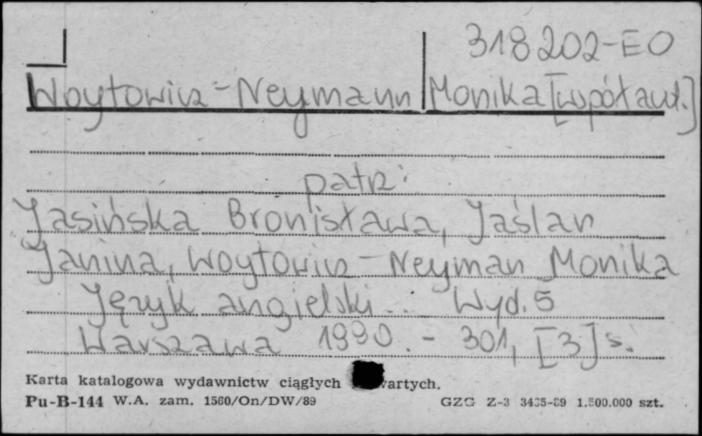 318202-EO
Woytowicz-Neymann Monika [współaut.]
patrz:
Jasińska Bronisława, Jaślan
Janina, Woytowicz-Neyman Monika
Język angielski... Wyd. 5
Warszawa 1990. - 301, [3] s.
Karta katalogowa wydawnictw ciągłych wartych.
Pu-B-144 W.A. zam. 1560/On/DW/89 GZG Z-3 3435-89 1.500.000 szt.